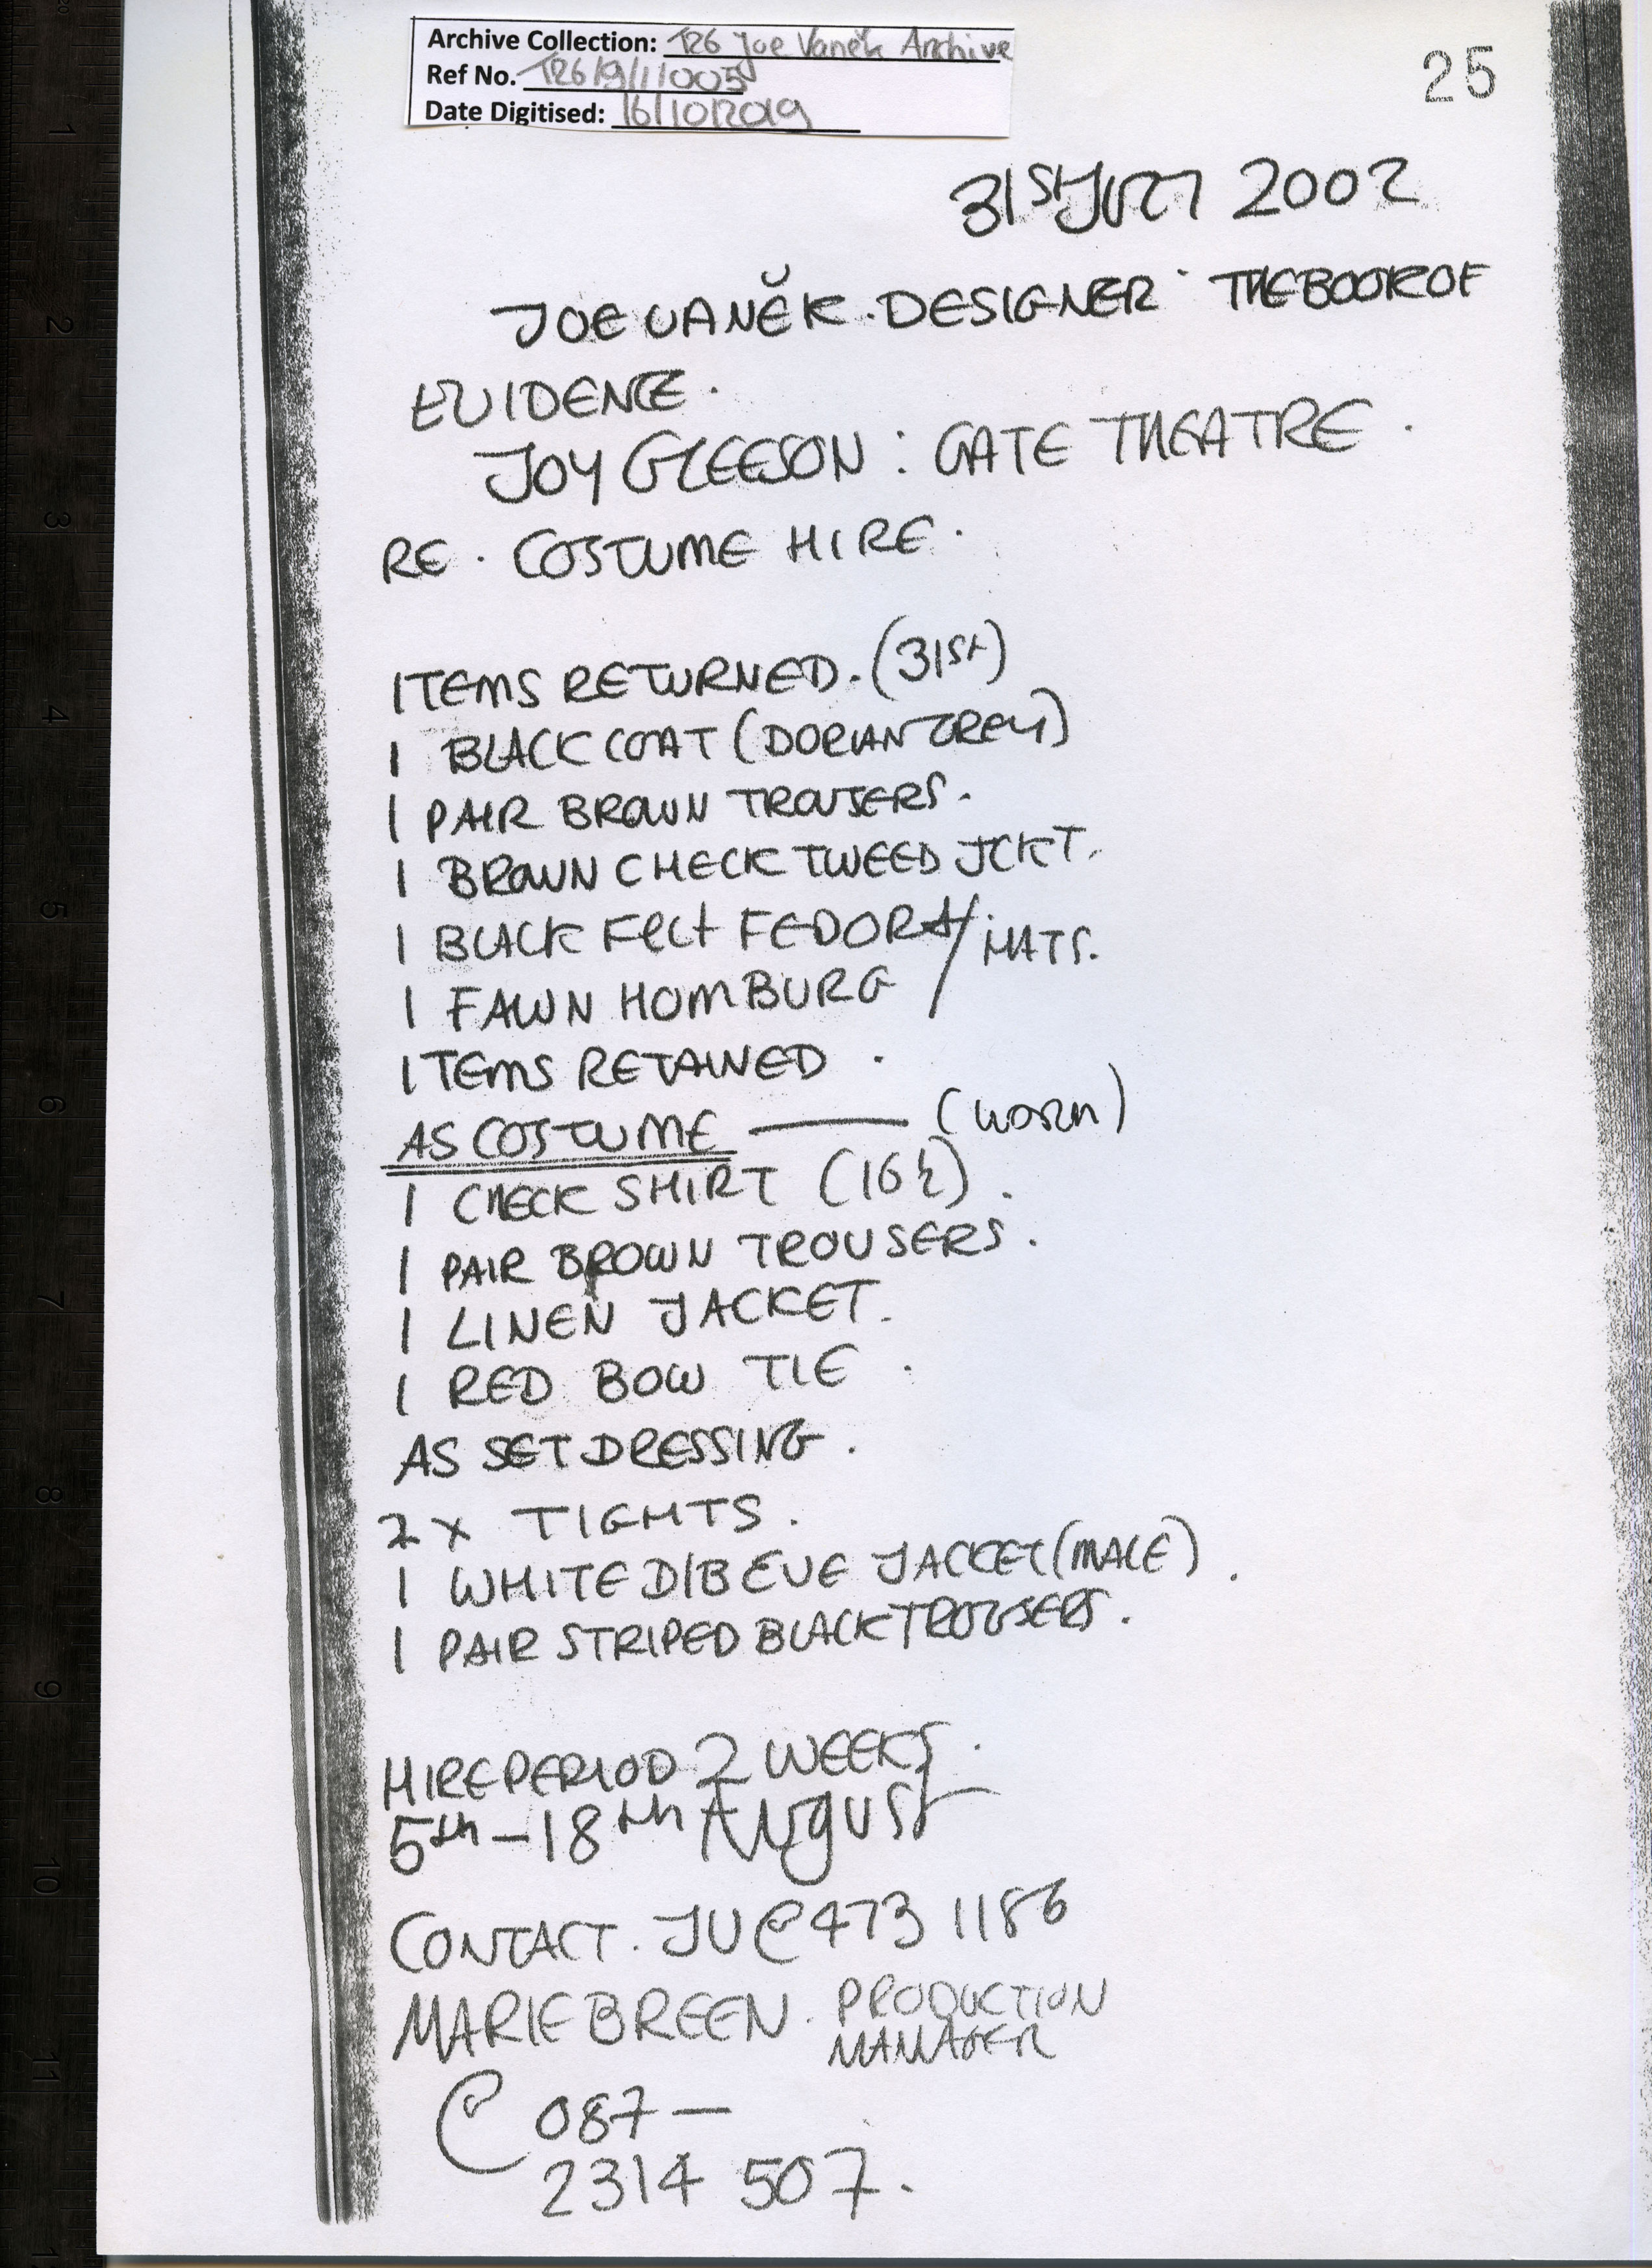 Archive Collection: T26 Joe Vaněk Archive
Ref No. T26/9/1/005
Date Digitised: 16/10/2019
25
31ST JULY 2002
JOE VANĚK. DESIGNER. THE BOOK OF
EVIDENCE.
JOY GLEESON : GATE THEATRE.
RE. COSTUME HIRE.
ITEMS RETURNED. (31st)
1 BLACK COAT (DORIAN GREY)
1 PAIR BROWN TROUSERS.
1 BROWN CHECK TWEED JCKT.
1 BLACK Felt FEDORA / HATS.
1 FAWN HOMBURG
ITEMS RETAINED.
AS COSTUME — (WORN)
1 CHECK SHIRT (16½).
1 PAIR BROWN TROUSERS.
1 LINEN JACKET.
1 RED BOW TIE.
AS SET DRESSING.
2 x TIGHTS.
1 WHITE D/B EVE JACKET (MALE).
1 PAIR STRIPED BLACK TROUSERS.
HIRE PERIOD 2 WEEKS.
5th – 18th August
CONTACT. JV @ 473 1186
MARIE BREEN. PRODUCTION
MANAGER
@ 087 –
2314 507.
1
2
3
4
5
6
7
8
9
10
11